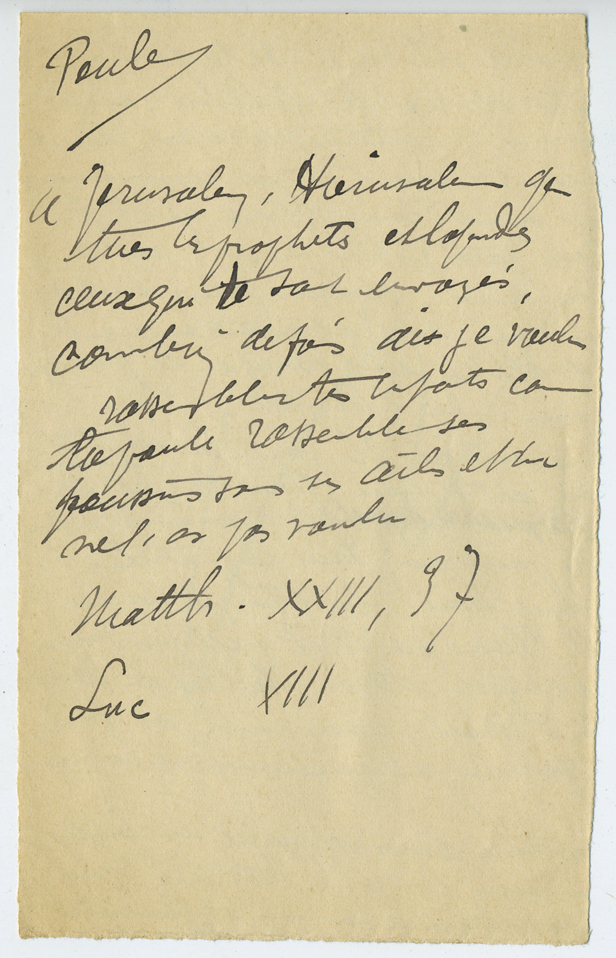 Poule
a Jerusalem, Hierusalem qui
tues les prophets et lapides
ceux qui te sont envoyés,
combien de fois ais je voulu
rassembler tes
la poule rassemble ses
poussins sous ses ailes et tu
ne l'as pas voulu
Matth. XXIII, 37
Luc XIII